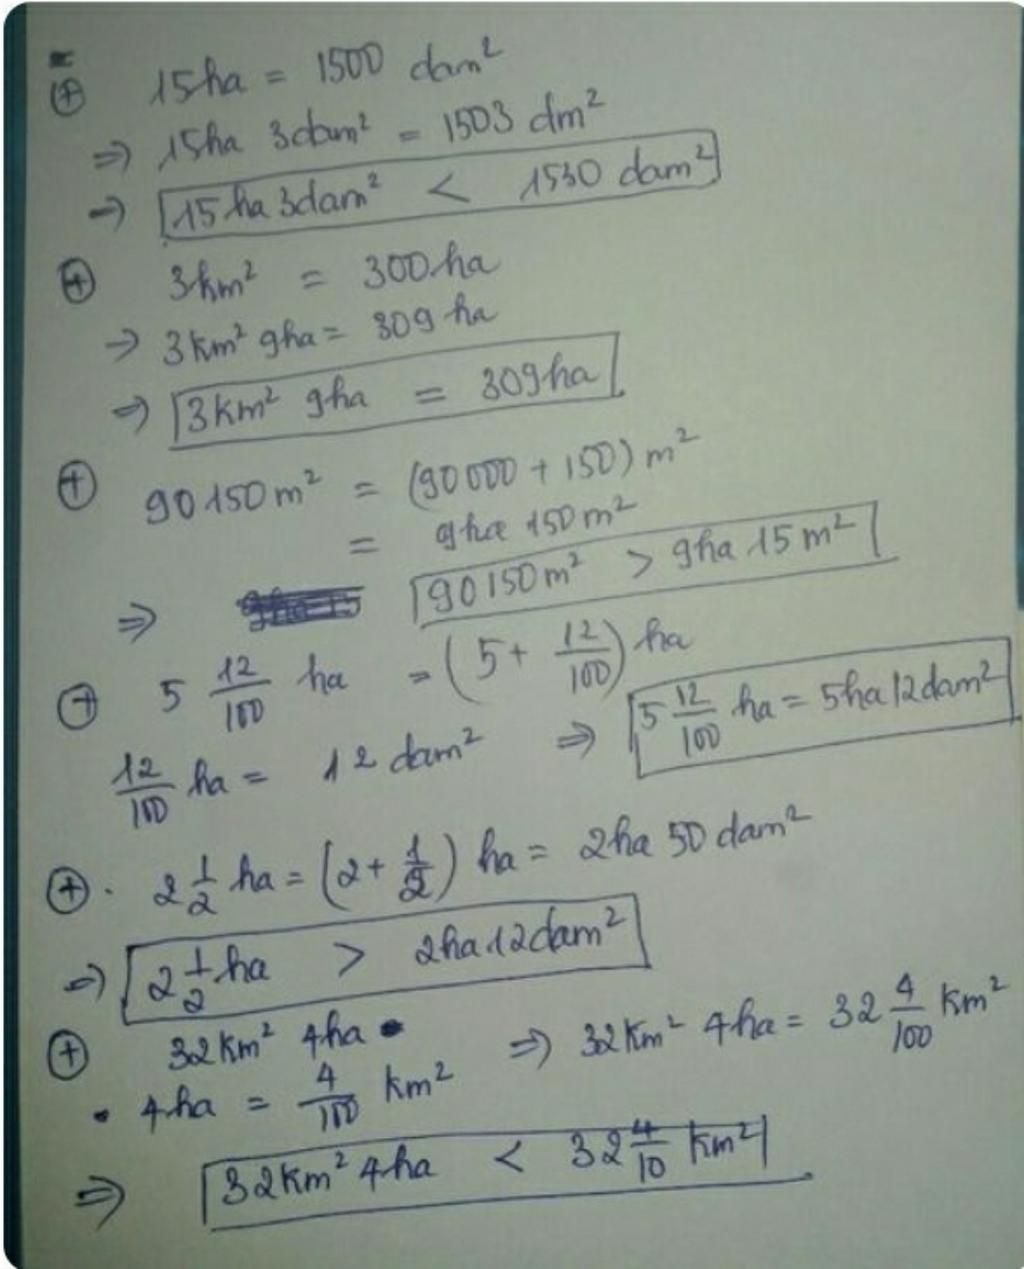 ⊕ 15ha = 1500 dam²
⇒ 15ha 3dam² = 1503 dm²
⇒ 15ha 3dam² < 1530 dam²
⊕ 3km² = 300ha
→ 3km² 9ha = 309 ha
⇒ 3km² 9ha = 309ha
⊕ 90150m² = (90000 + 150) m²
= 9ha 150m²
⇒ 90150m² > 9ha 15m²
⊕ 5 12/100 ha = (5 + 12/100) ha
12/100 ha = 12 dam² ⇒ 5 12/100 ha = 5ha 12dam²
⊕ 2 1/2 ha = (2 + 1/2) ha = 2ha 50 dam²
⇒ 2 1/2 ha > 2ha 12dam²
⊕ 32km² 4ha
• 4ha = 4/100 km² ⇒ 32km² 4ha = 32 4/100 km²
⇒ 32km² 4ha < 32 4/10 km²